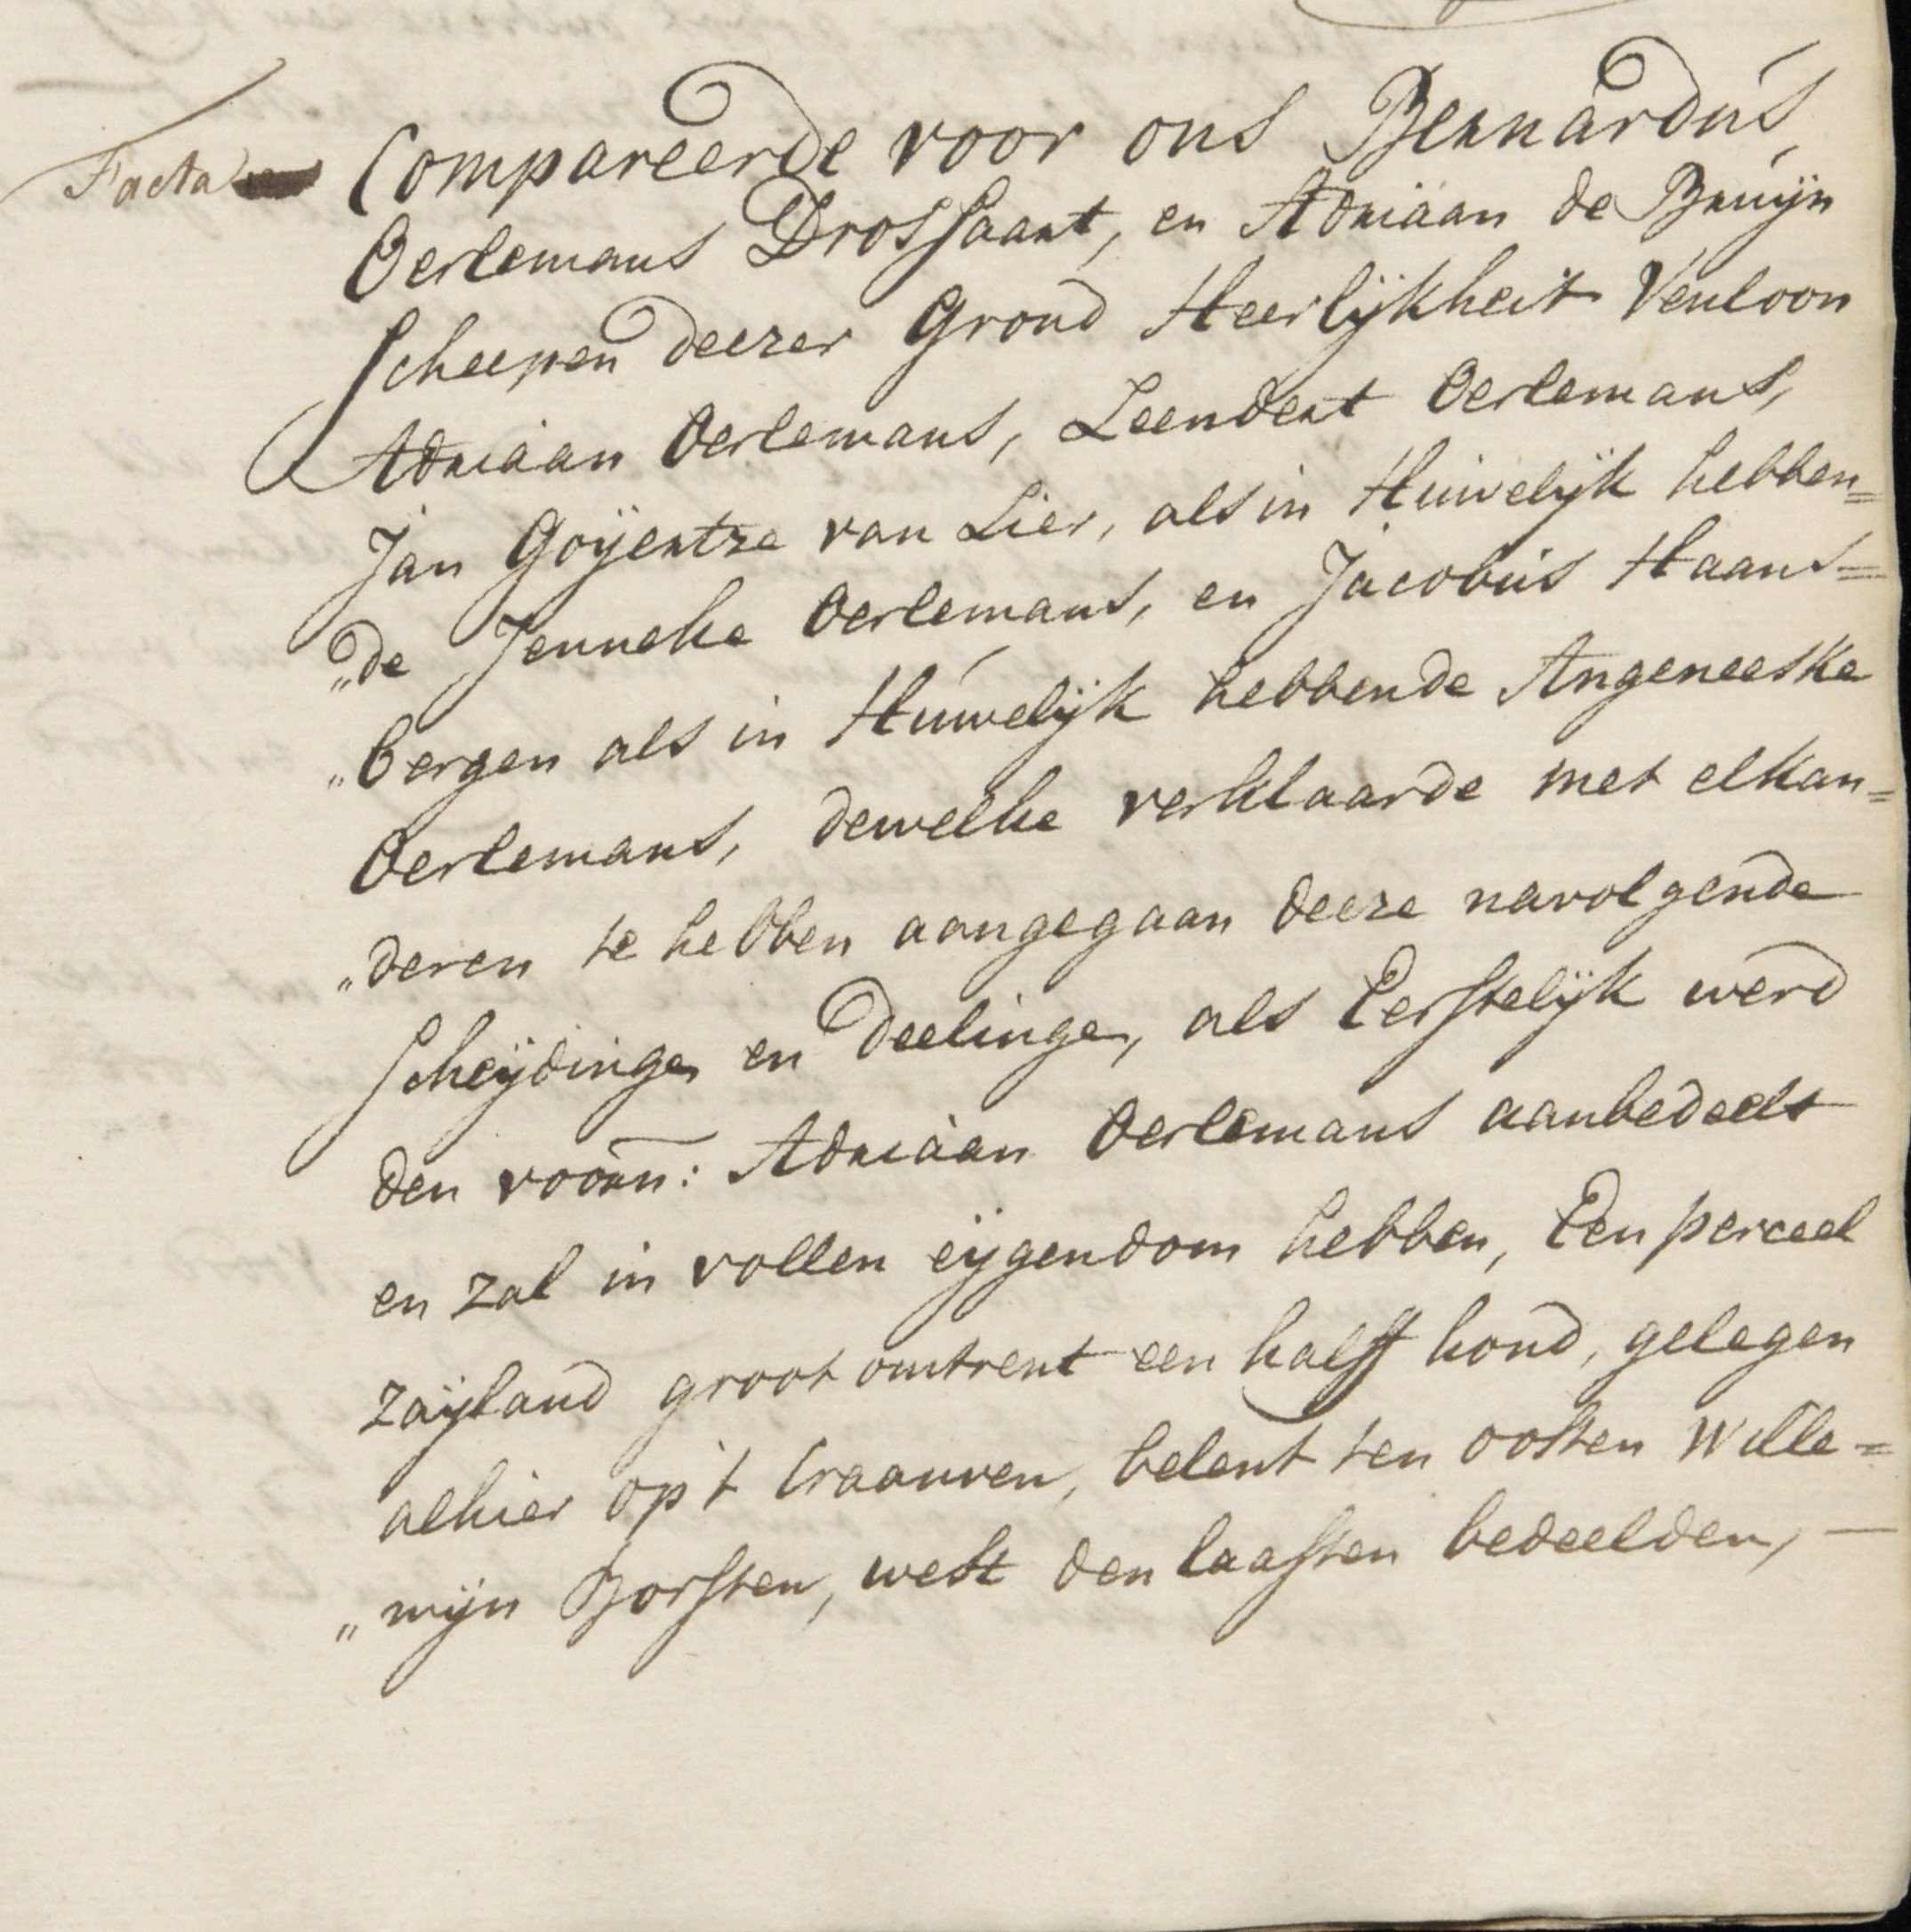 Facta
Compareerde voor ons Bernardus
Oerlemans Drossaart, en Adriaan de Bruijn
Scheepen deezer Grond Heerlijkheit Venloon
Adriaan Oerlemans, Leendert Oerlemans,
Jan Goijertze van Lier, als in Huwelijk hebben=
„de Jenneke Oerlemans, en Jacobus Haans=
„bergen als in Huwelijk hebbende Angeneeske
Oerlemans, dewelke verklaarde met elkan=
„deren te hebben aangegaan deeze navolgende
Scheijdinge en Deelinge, als Eerstelijk werd
den voorn: Adriaan Oerlemans aanbedeelt
en zal in vollen eijgendom hebben, Een perceel
zaijland groot omtrent een halff hond, gelegen
alhier op 't Craanven, belent ten oosten Wille=
„mijn Borsten, west den laasten bedeelden, —